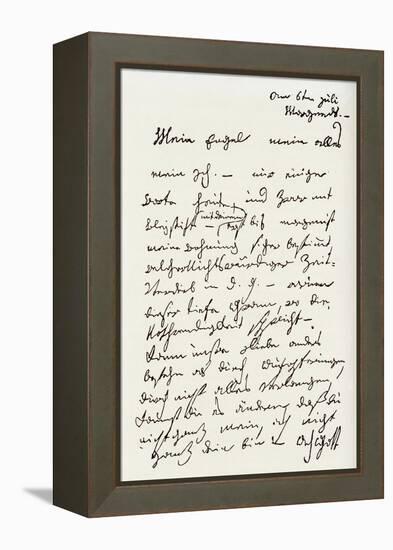 am 6ten Juli
Morgends. –
Mein Engel mein alles
mein Ich. – nur einige
Worte heute, und zwar mit
Bleystift – mit deinem erst bis morgen ist
meine Wohnung sicher bestimmt,
welcher nichtswürdiger Zeit-
Verderb in d. g. – warum
dieser tiefe Gram, wo die
Nothwendigkeit spricht –
Kann unsre Liebe anders
bestehn als durch Aufopferungen,
durch nicht alles verlangen,
kannst du es ändern, daß du
nicht ganz mein, ich nicht
ganz dein bin – Ach Gott